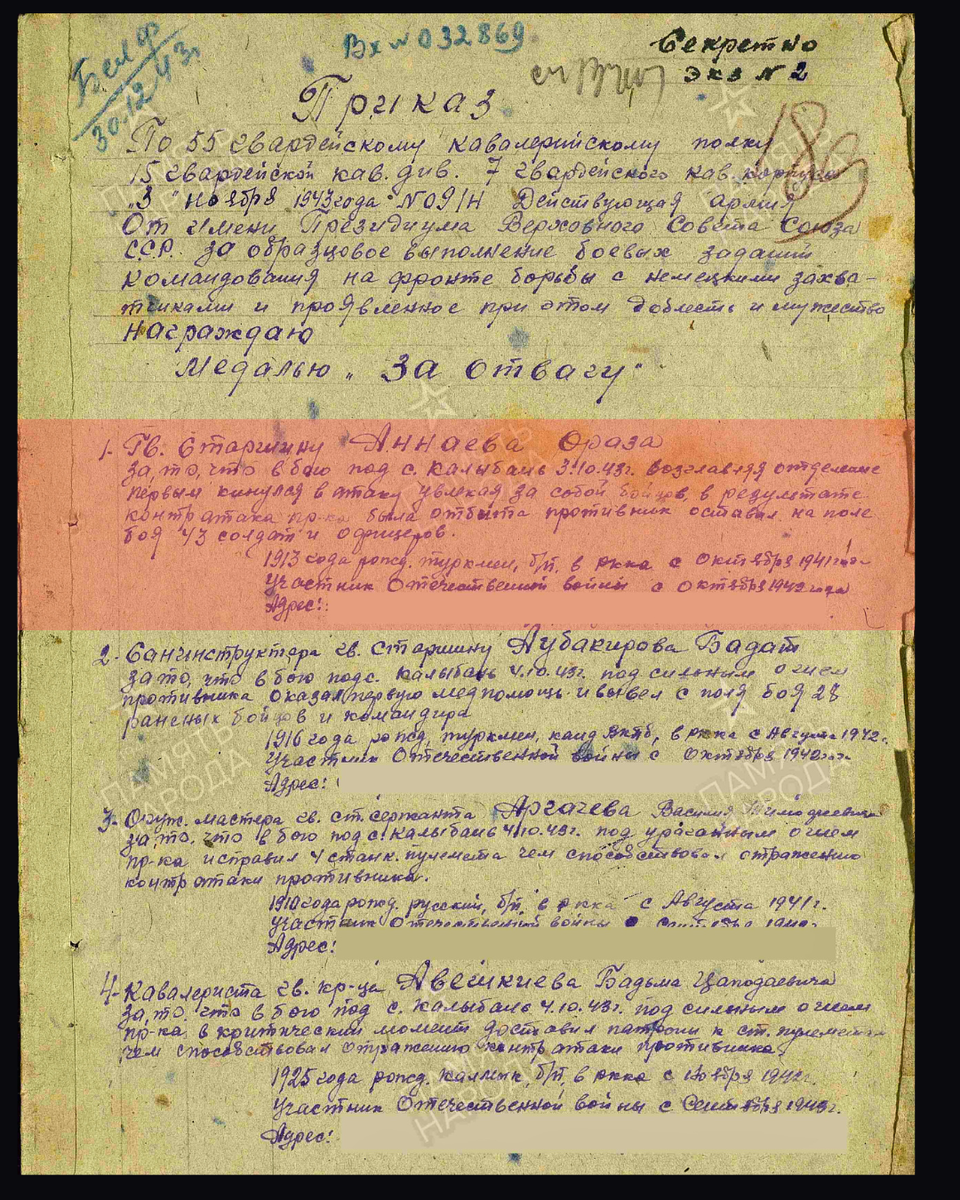 Белф
30.12.43г
Вх №032869
Секретно
экз №2
Приказ
По 55 гвардейскому кавалерийскому полку
15 гвардейской кав. див. 7 гвардейского кав. корпуса
"3" ноября 1943 года №09/Н Действующая армия
От имени Президиума Верховного Совета Союза
ССР. за образцовое выполнение боевых заданий
командования на фронте борьбы с немецкими захва-
тчиками и проявленное при этом доблесть и мужество
награждаю
Медалью "За отвагу"
1. Гв. Старшину Аннаева Ораза
за то, что в бою под с. Калыбань 3.10.43г. возглавляя отделение
первым кинулся в атаку увлекая за собой бойцов, в результате
контратака пр-ка была отбита противник оставил на поле
боя 43 солдат и офицеров.
1913 года рожд. туркмен, б/п, в ркка с октября 1941 года
участник Отечественной войны с октября 1942 года
Адрес:
2. Санинструктора гв. Старшину Аубакирова Бадат
за то, что в бою под с. Калыбань 4.10.43г. под сильным огнем
противника оказал первую медпомощь и вывел с поля боя 28
раненых бойцов и командира
1916 года рожд, туркмен, канд ВКПб, в ркка с Августа 1942г.
Участник Отечественной войны с октября 1942 года
Адрес:
3. Оруж. мастера гв. ст. сержанта Аргачева Василия Тимофеевича
за то, что в бою под с. Калыбань 4.10.43г. под ураганным огнем
пр-ка исправил 4 станк. пулемета чем способствовал отражению
контратаки противника.
1910 года рожд. русский, б/п, в ркка с Августа 1941г.
участник Отечественной войны с
Адрес:
4. Кавалериста гв. кр-ца Авешкиева Бадьма Цаподаевича
за то, что в бою под с. Калыбань 4.10.43г. под сильным огнем
пр-ка, в критический момент доставил патроны к ст. пулемету
чем способствовал отражению контратаки противника.
1925 года рожд. калмык, б/п, в ркка с ноября 1942г.
Участник Отечественной войны с Сентября 1943г.
Адрес:
ПАМЯТЬ
НАРОДА